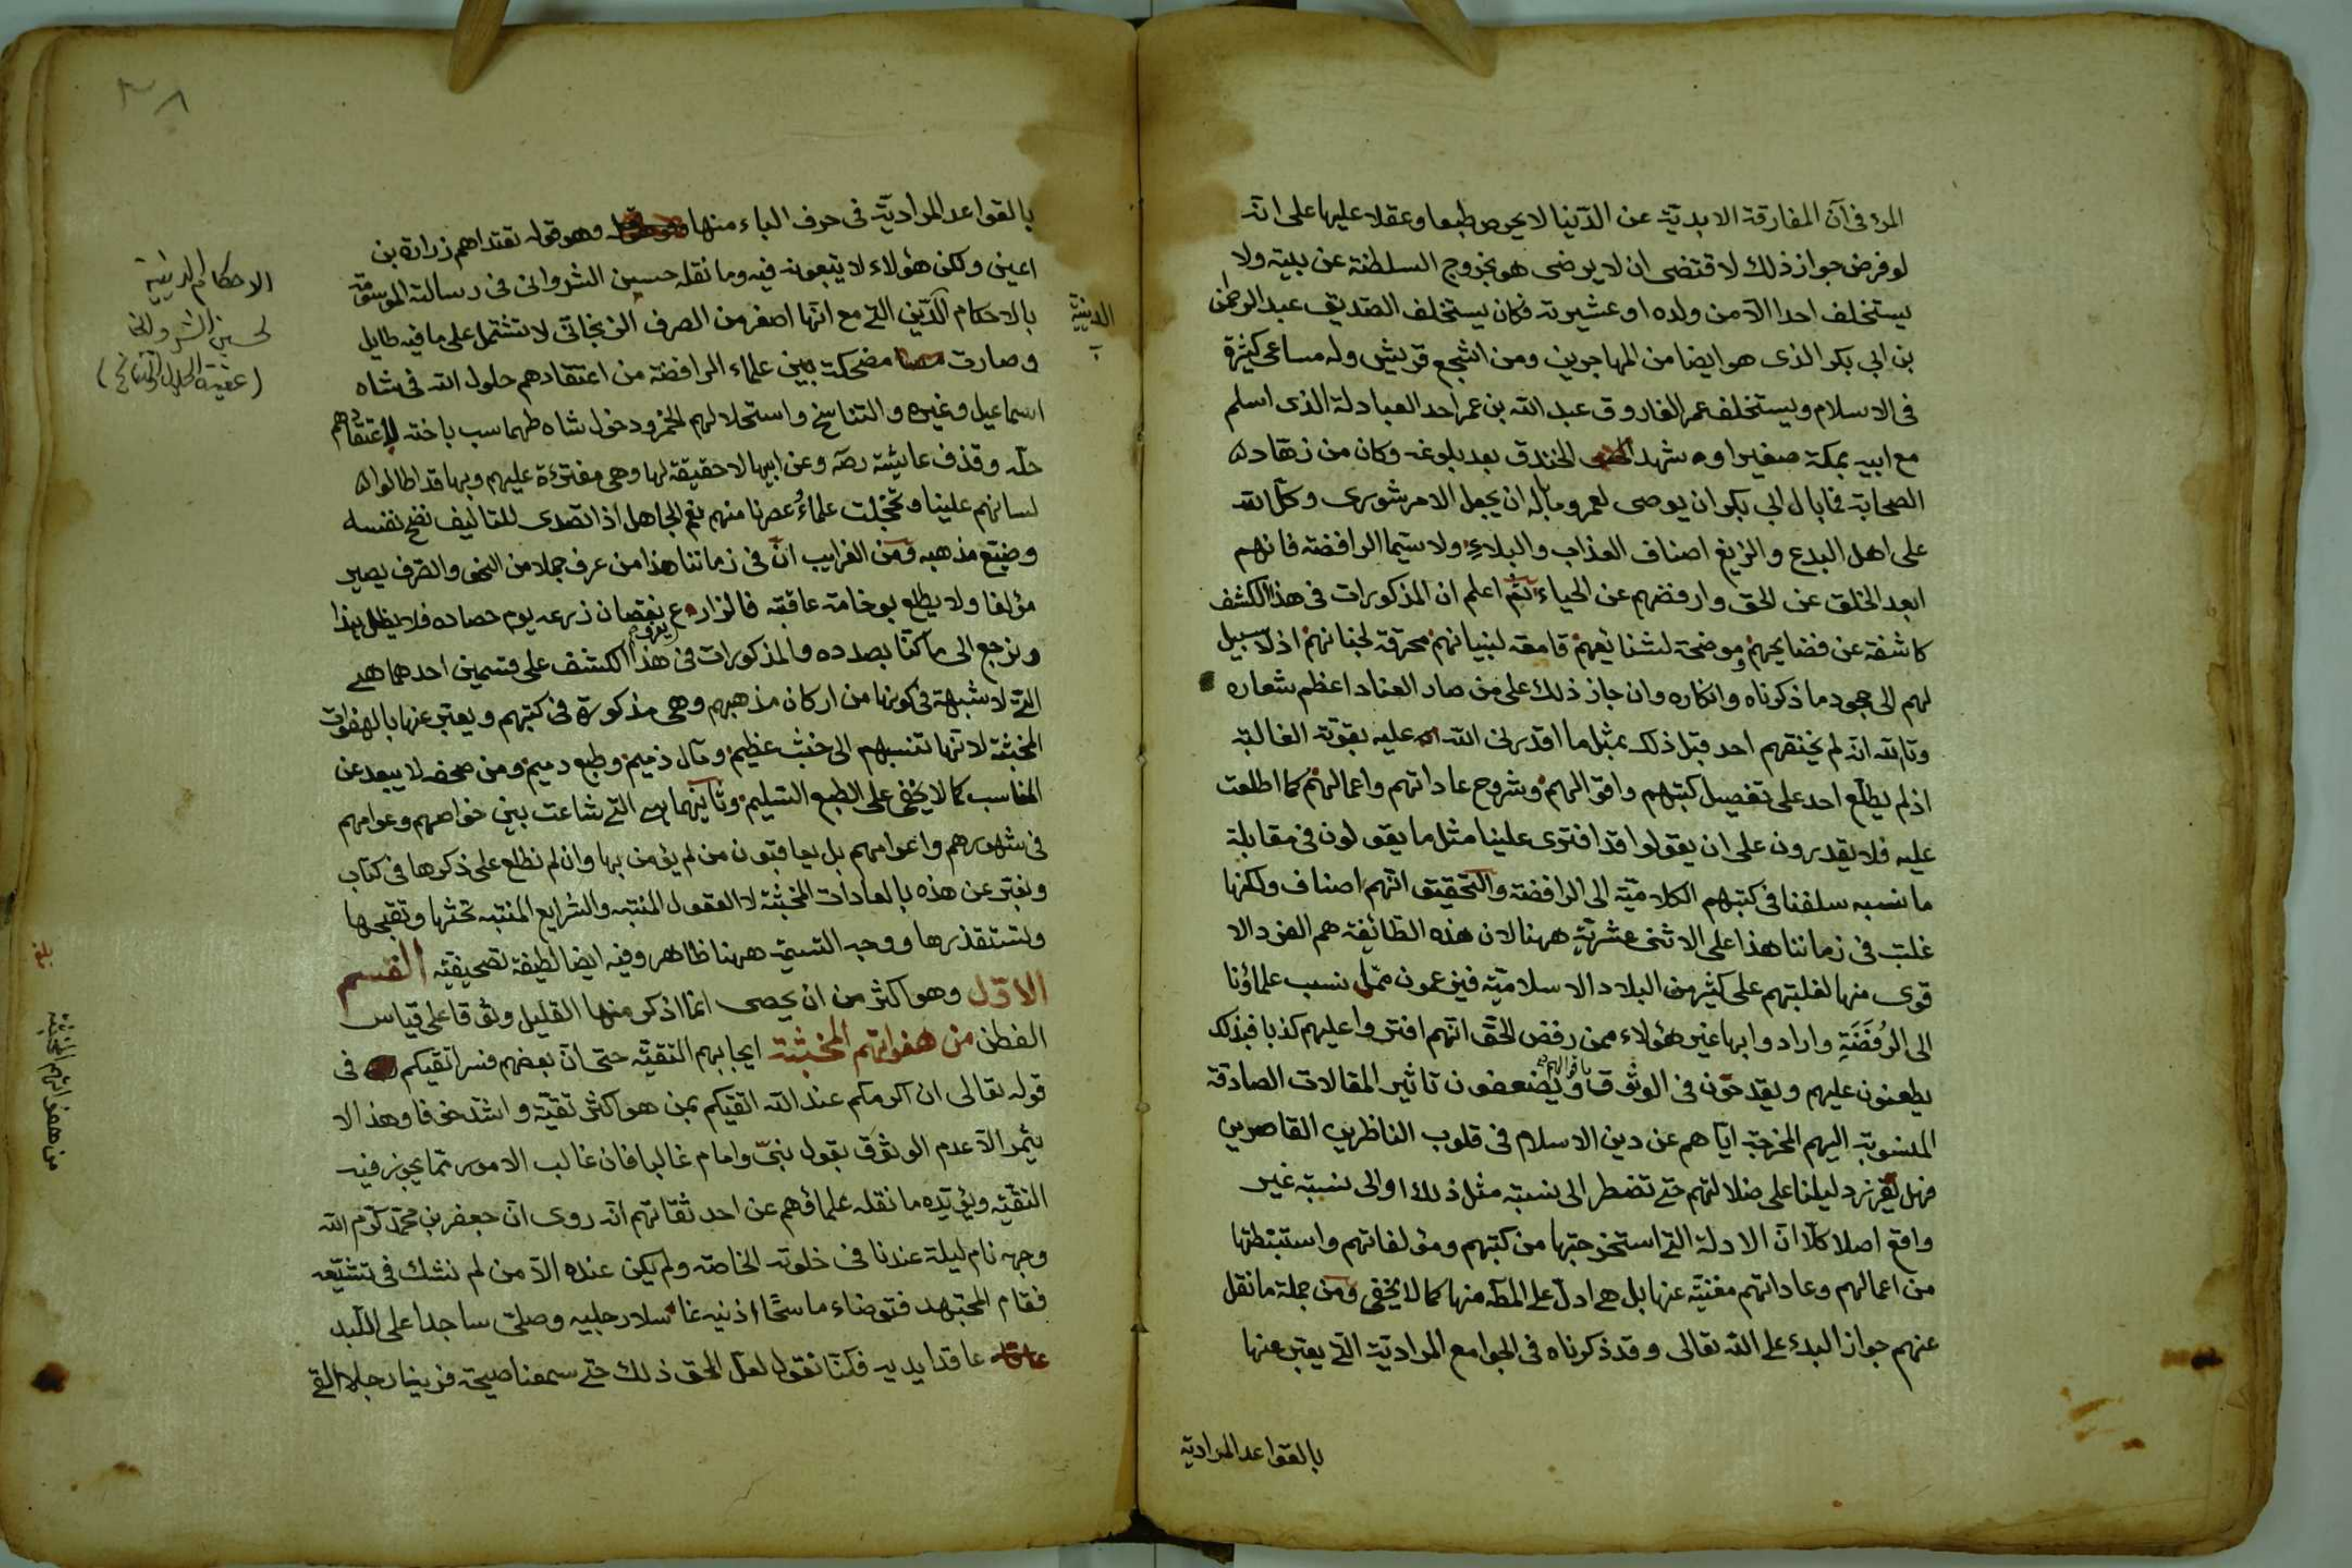 المرء في آن المفارقة الابدية عن الدنيا لا يحرص طبعا وعقلا عليها على انه
لو فرض جواز ذلك لاقتضى ان لا يرضى هو بخروج السلطنة عن بيته ولا
يستخلف احدا الا من ولده او عشيرته فكان يستخلف الصديق عبد الرحمن
بن ابي بكر الذى هو ايضا من المهاجرين ومن اشجع قريش وله مساعى كثيرة
فى الاسلام ويستخلف عمر الفاروق عبد الله بن عمر احد العبادلة الذى اسلم
مع ابيه بمكة صغيرا وشهد الخندق بعد بلوغه وكان من زهاد
الصحابة فما بال ابي بكر ان يوصى لعمر وما باله ان يجعل الامر شورى
على اهل البدع والزيغ اصناف العذاب والبلاء ولا سيما الرافضة فانهم
ابعد الخلق عن الحق وارفضهم عن الحياء ثم اعلم ان المذكورات فى هذا الكشف
كاشفة عن فضايحهم وموضحة لشنايعهم قامعة لبنيانهم محرقة لجنانهم اذ لا سبيل
لهم الى جحود ما ذكرناه وانكاره وان جاز ذلك على من صار العناد اعظم شعاره
وتالله انه لم يخنقهم احد قبل ذلك بمثل ما اقدرنى الله عليه بقوته الغالبة
اذ لم يطلع احد على تفصيل كتبهم واقوالهم وشروح عاداتهم واعمالهم كما اطلعت
عليه فلا يقدرون على ان يقولوا قد افترى علينا مثل ما يقولون فى مقابلة
ما نسبه سلفنا فى كتبهم الكلامية الى الرافضة والتحقيق انهم اصناف ولكنها
غلبت فى زماننا هذا على الاثنى عشرية ههنا لان هذه الطائفة هم الفرد الا
قوى منها لغلبتهم على كثير من البلاد الاسلامية فيزعمون نسب علماؤنا
الى الرفضة وارادوا بها غير هؤلاء ممن رفض الحق انهم افتروا عليهم كذبا فبذلك
يطعنون عليهم ويقدحون فى الوثوق باقوالهم ويضعفون تاثير المقالات الصادقة
المنسوبة اليهم المخرجة اياهم عن دين الاسلام فى قلوب الناظرين القاصرين
فهل دليلنا على ضلالتهم حتى تضطر الى نسبة مثل ذلك او الى نسبة غير
واقع اصلا كلا ان الادلة التى استخرجتها من كتبهم ومؤلفاتهم واستنبطتها
من اعمالهم وعاداتهم مغنية عنها بل هى ادل على المط منها كما لا يخفى ومن جملة ما نقل
عنهم جواز البدء على الله تعالى وقد ذكرناه فى الجوامع المرادية التى يعتبر عنها
بالقواعد المرادية
بالقواعد المرادية فى حرف الباء منها وهو قوله تقتداهم زرارة بن
اعين ولكن هؤلاء لا يتبعونه فيه وما نقله حسين الشروانى فى رسالته الموسومة
بالاحكام الدين التى مع انها اصغر من الصرف الزنجانى لا تشتمل على ما فيه طايل
الدينية
وصارت مضحكة بين علماء الرافضة من اعتقادهم حلول الله فى شاه
اسماعيل وغيره والتناسخ واستحلالهم الخمر ودخول شاه طهماسب باخته لاعتقادهم
حله وقذف عايشة رضه وعن ابيها لا حقيقة لها وهى مفترءة عليهم وبها قد اطالوا
لسانهم علينا وتخجلت علماء عصرنا منهم نعم الجاهل اذا تصدى للتاليف فضح نفسه
وضيع مذهبه ومن الغرايب ان فى زماننا هذا من عرف جملا من النحو والصرف يصير
مؤلفا ولا يطلع بوخامة عاقبته فالزارع نقصان زرعه يوم حصاده
ونرجع الى ما كنا بصدده والمذكورات فى هذا الكشف على قسمين احدهما هى
التى لا شبهة فى كونها من اركان مذهبهم وهى مذكورة فى كتبهم ويعتبر عنها بالهفوات
المخبثة لانها تنسبهم الى خبث عظيم ومآل ذميم وطبع دميم ومن صحفه لا يبعد عن
المناسب كما لا يخفى على الطبع السليم وثانيهما هى التى شاعت بين خواصهم وعوامهم
فى شهورهم واعوامهم بل يعاقبون من لم يؤمن بها وان لم نطلع على ذكرها فى كتاب
ونعتبر عن هذه بالعادات المخبثة لا العقول المنتبه والشرايع المنتبه تخبثها وتقبحها
وتستقذرها ووجه التسمية ههنا ظاهر وفيه ايضا لطيفة تصحيفية القسم
الاول وهو اكثر من ان يحصى انما اذكر منها القليل وثوقا على قياس
الفطن من هفواتهم المخبثة ايجابهم التقية حتى ان بعضهم فسر اتقيكم فى
قوله تعالى ان اكرمكم عند الله اتقيكم بمن هو اكثر تقية واشد خوفا وهذا لا
يثمر الا عدم الوثوق بقول نبى وامام غالبا فان غالب الامور مما يجوز فيه
التقية ويؤيده ما نقله علماؤهم عن احد ثقاتهم انه روى ان جعفر بن محمد كرم الله
وجهه نام ليلة عندنا فى خلوته الخاصة ولم يكن عنده الا من لم نشك فى تشيعه
فقام المجتهد فتوضاء ماسحا اذنيه غاسلا رجليه وصلى ساجدا على اللبد
عاقدا يديه فكنا نقول لعل الحق ذلك حتى سمعنا صيحة فرينا رجلا القى
الاحكام الدينية
لحسين الشروانى
(عقيدة الحلول والتناسخ)
من هفواتهم المخبثة